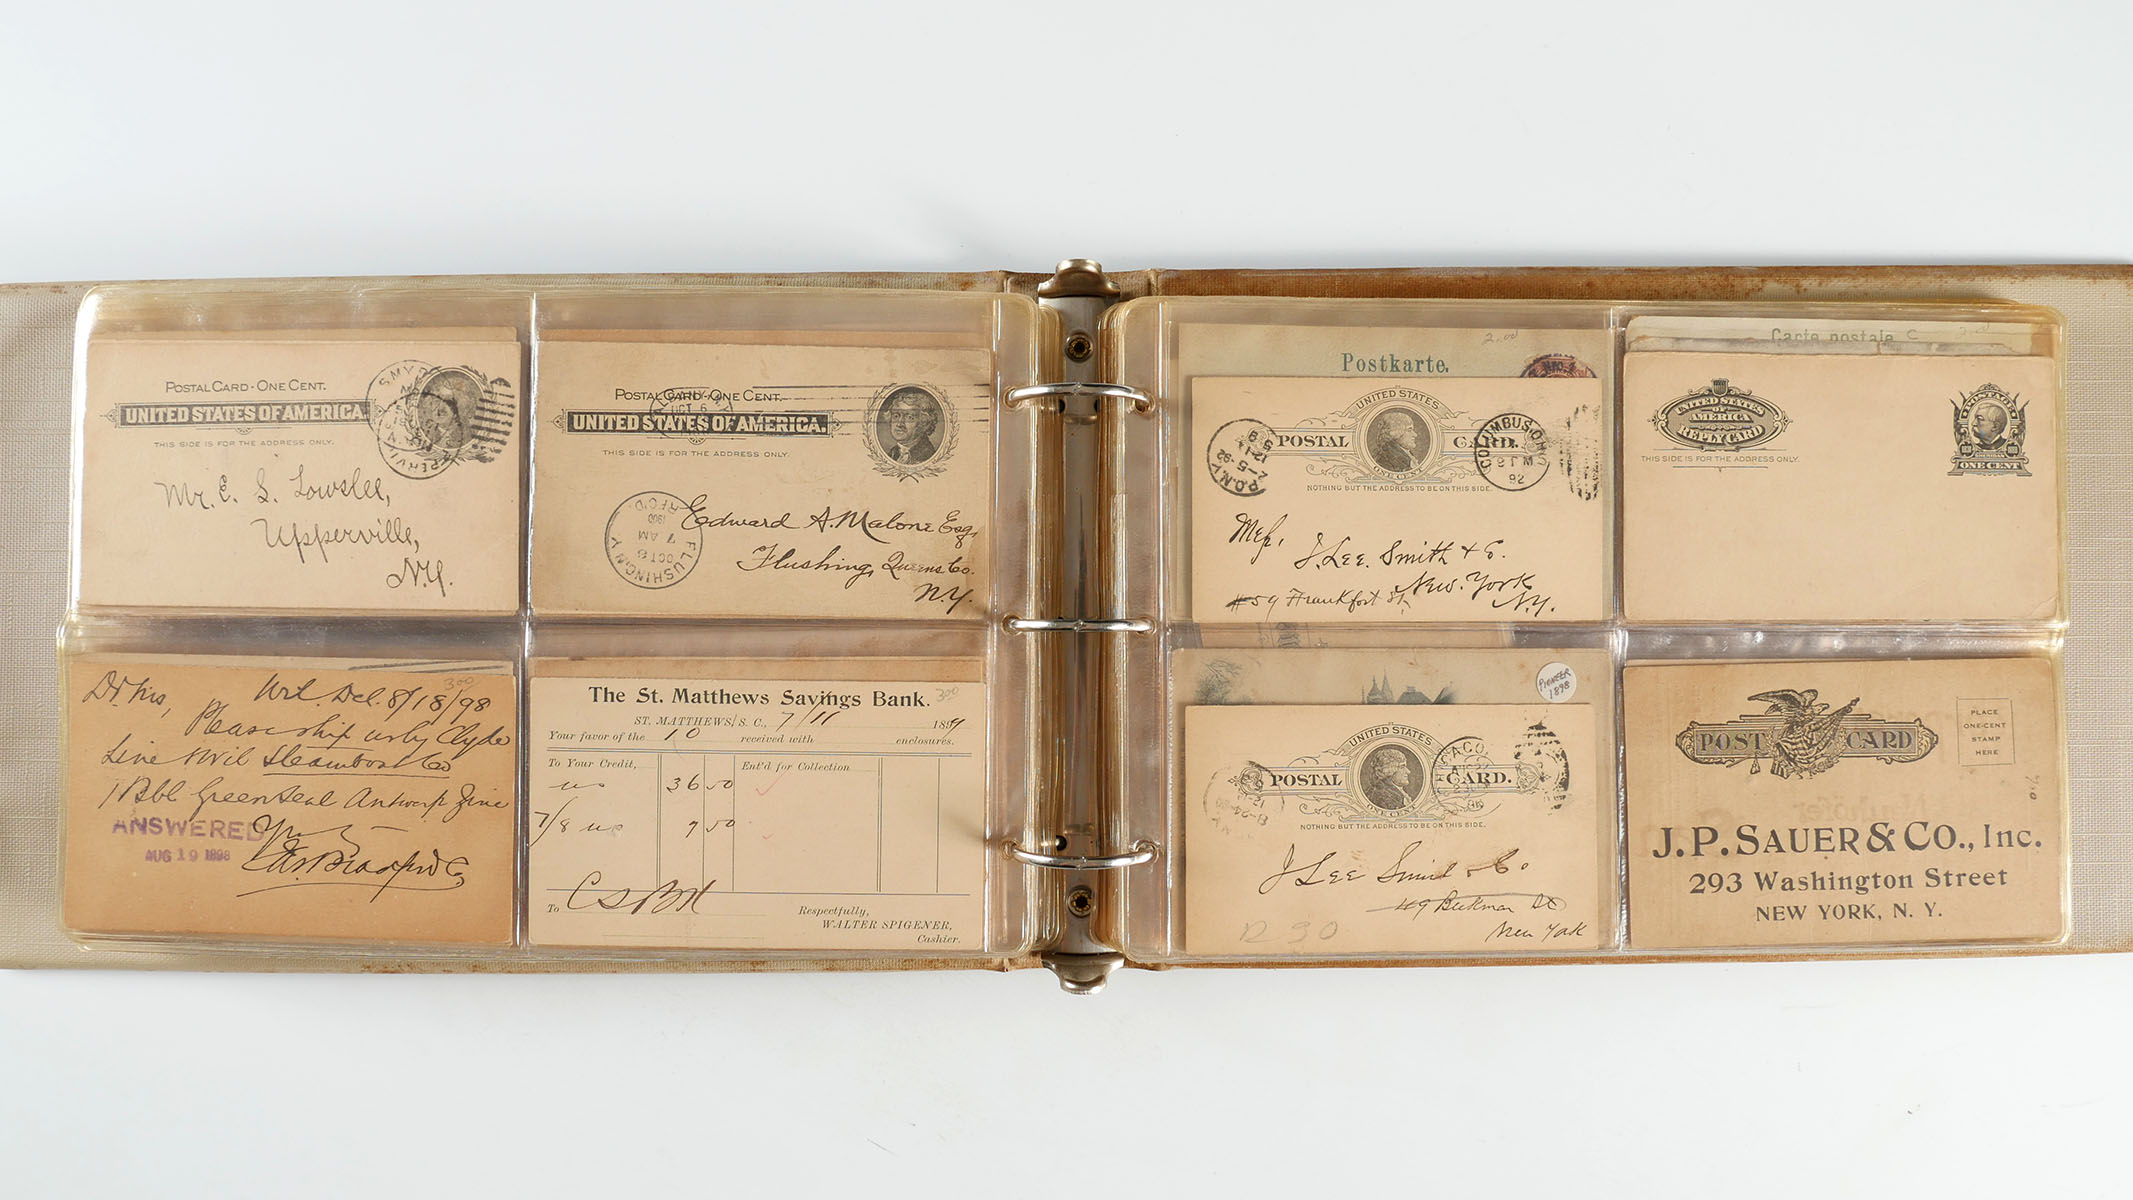 POSTAL CARD · ONE CENT.
UNITED STATES OF AMERICA.
THIS SIDE IS FOR THE ADDRESS ONLY.
Mr. E. S. Lowslee,
Upperville,
N.Y.
POSTAL CARD · ONE CENT.
UNITED STATES OF AMERICA.
THIS SIDE IS FOR THE ADDRESS ONLY.
FLUSHING N.Y.
OCT 6
7 AM
1900
REC'D.
Edward A. Malone Esq.
Flushing, Queens Co.
N.Y.
300
Wil. Del. 8/18/98
Please ship us by Clyde
Line & Wil Steamboat Co
1 Bbl Green Seal Antwerp Zinc
ANSWERED
AUG 19 1898
The St. Matthews Savings Bank.
300
ST. MATTHEWS, S. C., 7/11 1899
Your favor of the 10 received with enclosures.
To Your Credit, Ent'd for Collection
us 36 50
7/8 us 9 50
To
Respectfully,
WALTER SPIGENER,
Cashier.
2.00
Postkarte.
UNITED STATES
POSTAL CARD.
ONE CENT
NOTHING BUT THE ADDRESS TO BE ON THIS SIDE.
COLUMBUS OHIO
92
P.O.N.Y.
J. Lee Smith & Co.
New York
N.Y.
#59 Frankfort St.
Carte postale
UNITED STATES
OF
AMERICA
REPLY CARD
THIS SIDE IS FOR THE ADDRESS ONLY.
POSTAGE
SHERIDAN
ONE CENT
PIONEER
1898
UNITED STATES
POSTAL CARD.
ONE CENT
NOTHING BUT THE ADDRESS TO BE ON THIS SIDE.
J Lee Smith & Co
49 Beekman St
New York
POST CARD
PLACE
ONE-CENT
STAMP
HERE
J. P. SAUER & CO., INC.
293 Washington Street
NEW YORK, N. Y.